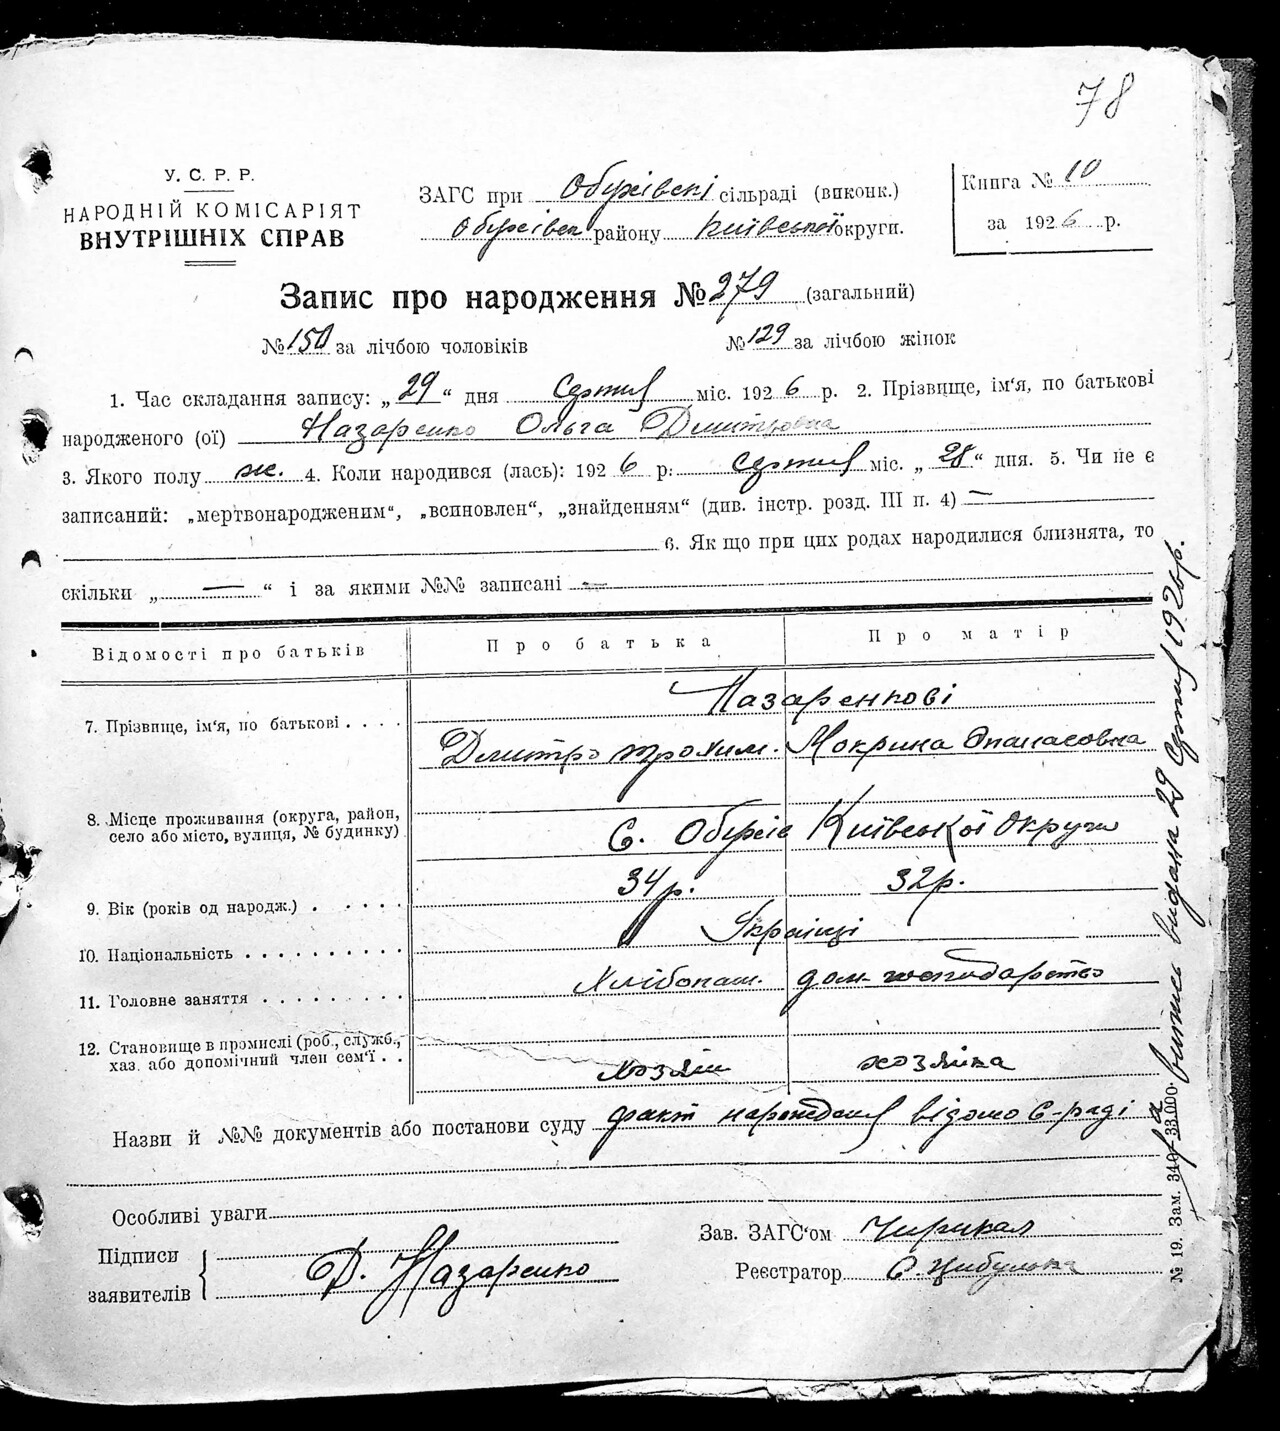 78
У. С. Р. Р.
НАРОДНІЙ КОМІСАРІЯТ
ВНУТРІШНІХ СПРАВ
ЗАГС при сільраді (виконк.)
району Київської округи.
Книга № 10
за 1926 р.
Запис про народження № 279 (загальний)
№ 150 за лічбою чоловіків № 129 за лічбою жінок
1. Час складання запису: „29“ дня Серпня міс. 1926 р. 2. Прізвище, ім'я, по батькові
народженого (ої) Назаренко Ольга Дмитровна
3. Якого полу ж. 4. Коли народився (лась): 1926 р: Серпня міс. „28“ дня. 5. Чи не є
записаний: „мертвонародженим“, „всиновлен“, „знайденням“ (див. інстр. розд. III п. 4) —
6. Як що при цих родах народилися близнята, то
скільки „ — “ і за якими №№ записані —
Відомості про батьків Про батька Про матір
Назаренкові
7. Прізвище, ім'я, по батькові . . . . Дмитро Трохим. Мокрина Опанасовна
8. Місце проживання (округа, район,
село або місто, вулиця, № будинку) С. Київської Округи
9. Вік (років од народж.) . . . . . 34 р. 32 р.
10. Національність . . . . . . . . . . Українці
11. Головне заняття . . . . . . . . . Хлібопаш. дом. господарство
12. Становище в промислі (роб., служб.,
хаз. або допомічний член сем'ї . . хозяїн хозяйка
Назви й №№ документів або постанови суду факт народження відомо С-раді
Особливі уваги
Підписи
заявителів
Д. Назаренко
Зав. ЗАГС'ом
Реєстратор С. Цибулька
№ 19. Зам. 33.000.
випись видана 29 Серпня 1926 р.